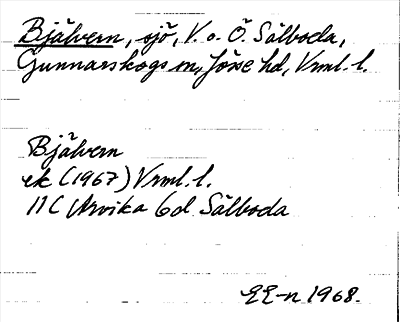 Bjälvern, sjö, V. o. Ö. Sälboda,
Gunnarskogs sn, Jösse hd, Vrml. l.
Bjälvern
ek (1967) Vrml. l.
11 C Arvika 6d Sälboda
EE-n 1968.